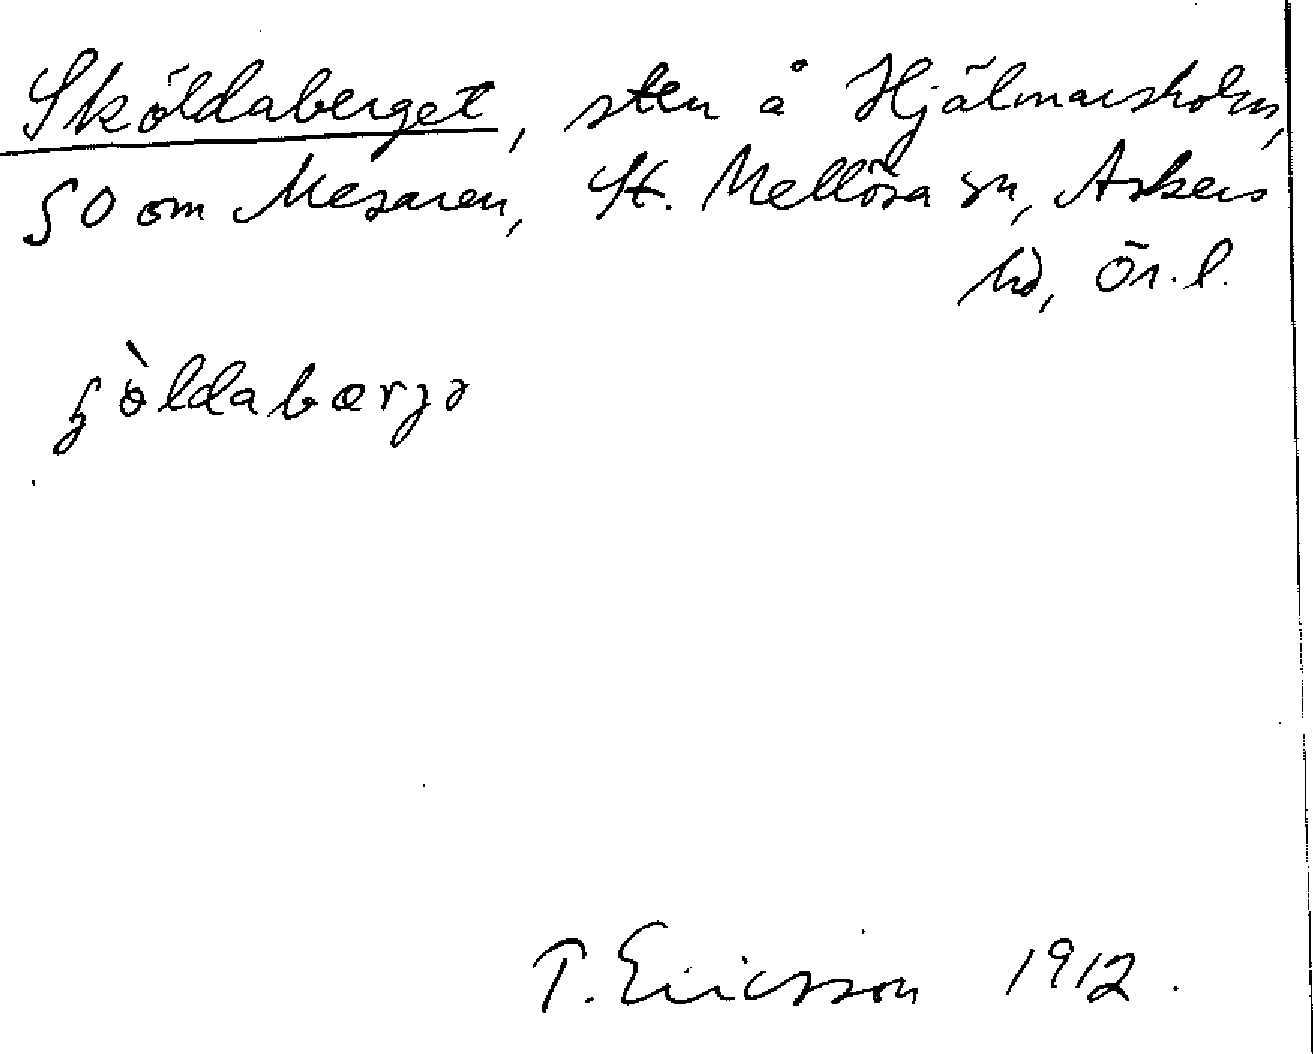 Sköldaberget, sten å Hjälmarsholm,
SO om Mesaren, St. Mellösa sn, Askers
hd, Ör. l.
T. Ericsson 1912.